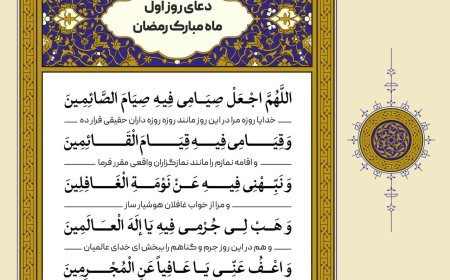 دعای روز اول
ماه مبارک رمضان
اللَّهُمَّ اجْعَلْ صِيَامِي فِيهِ صِيَامَ الصَّائِمِينَ
خدایا روزه مرا در این روز مانند روزه روزه داران حقیقی قرار ده
وَ قِيَامِي فِيهِ قِيَامَ الْقَائِمِينَ
و اقامه نمازم را مانند نمازگزاران واقعی مقرر فرما
وَ نَبِّهْنِي فِيهِ عَنْ نَوْمَةِ الْغَافِلِينَ
و مرا از خواب غافلان هوشیار ساز
وَ هَبْ لِي جُرْمِي فِيهِ يَا إِلَهَ الْعَالَمِينَ
و هم در این روز جرم و گناهم را ببخش ای خدای عالمیان
وَ اعْفُ عَنِّي يَا عَافِياً عَنِ الْمُجْرِمِينَ